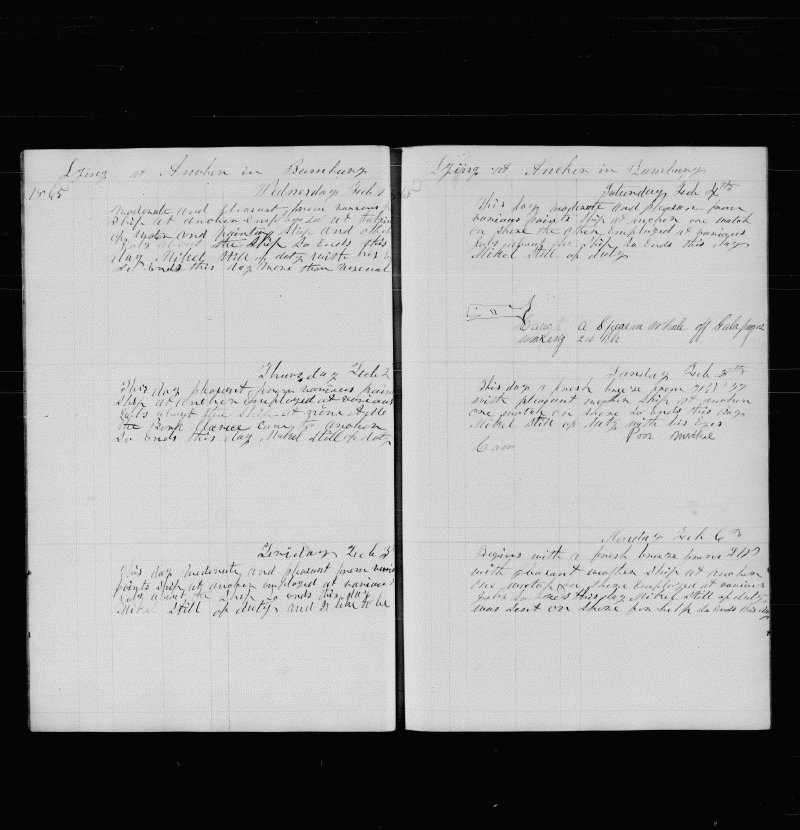 Lying at Anchor in Bumbury
1865 Wednesday Feb 1
Moderate and pleasant from various
Ship at anchor employed at taking
of oyster and painting Ship and other
jobs about the Ship So Ends this
day Mikel still of duty with his
So Ends this day more than usual
Thursday Feb 2
This day pleasant from various points
Ship at anchor employed at various
jobs about the Ship at nine
the Bark Clarice came to anchor
So Ends this day Mikel still of duty
Friday Feb 3
This day Moderate and pleasant from various
points Ship at anchor employed at various
jobs about the Ship So ends this day
Mikel Still of duty and is like to be
Lying at Anchor in Bumbury
1865 Saturday Feb 4th
This day moderate and pleasan from
various points Ship at anchor one watch
on shore the other Employed at various
jobs about the Ship So Ends this day
Mikel Still of duty
Caugt a Spearm Whale off Galapagos
making
Sunday Feb 5th
This day a fresh breeze from
with pleasant weather Ship at anchor
one watch on shore So Ends this day
Mikel still of duty with his Eyes
Poor Mikel
Cam
Monday Feb 6th
Begins with a fresh breeze from
with pleasant weather Ship at anchor
one watch on shore Employed at various
jobs So Ends this day Mikel Still of duty
was sent on shore for help So Ends this day